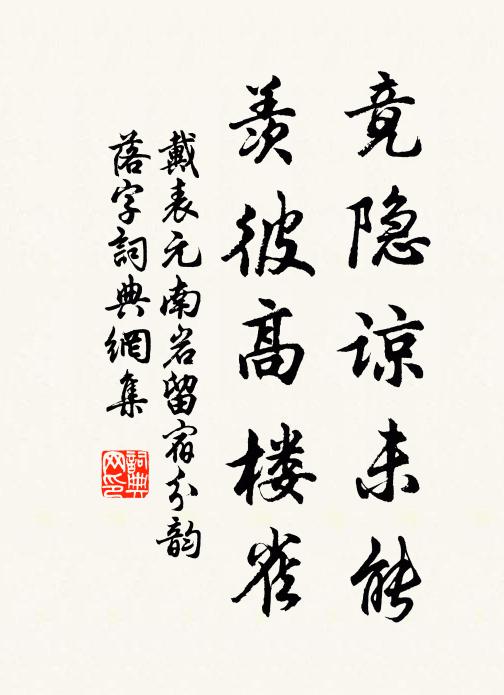 竟隐谅未能
羡彼高楼雀
戴表元南岩留宿分韵
落字詞典網集
詞典网印